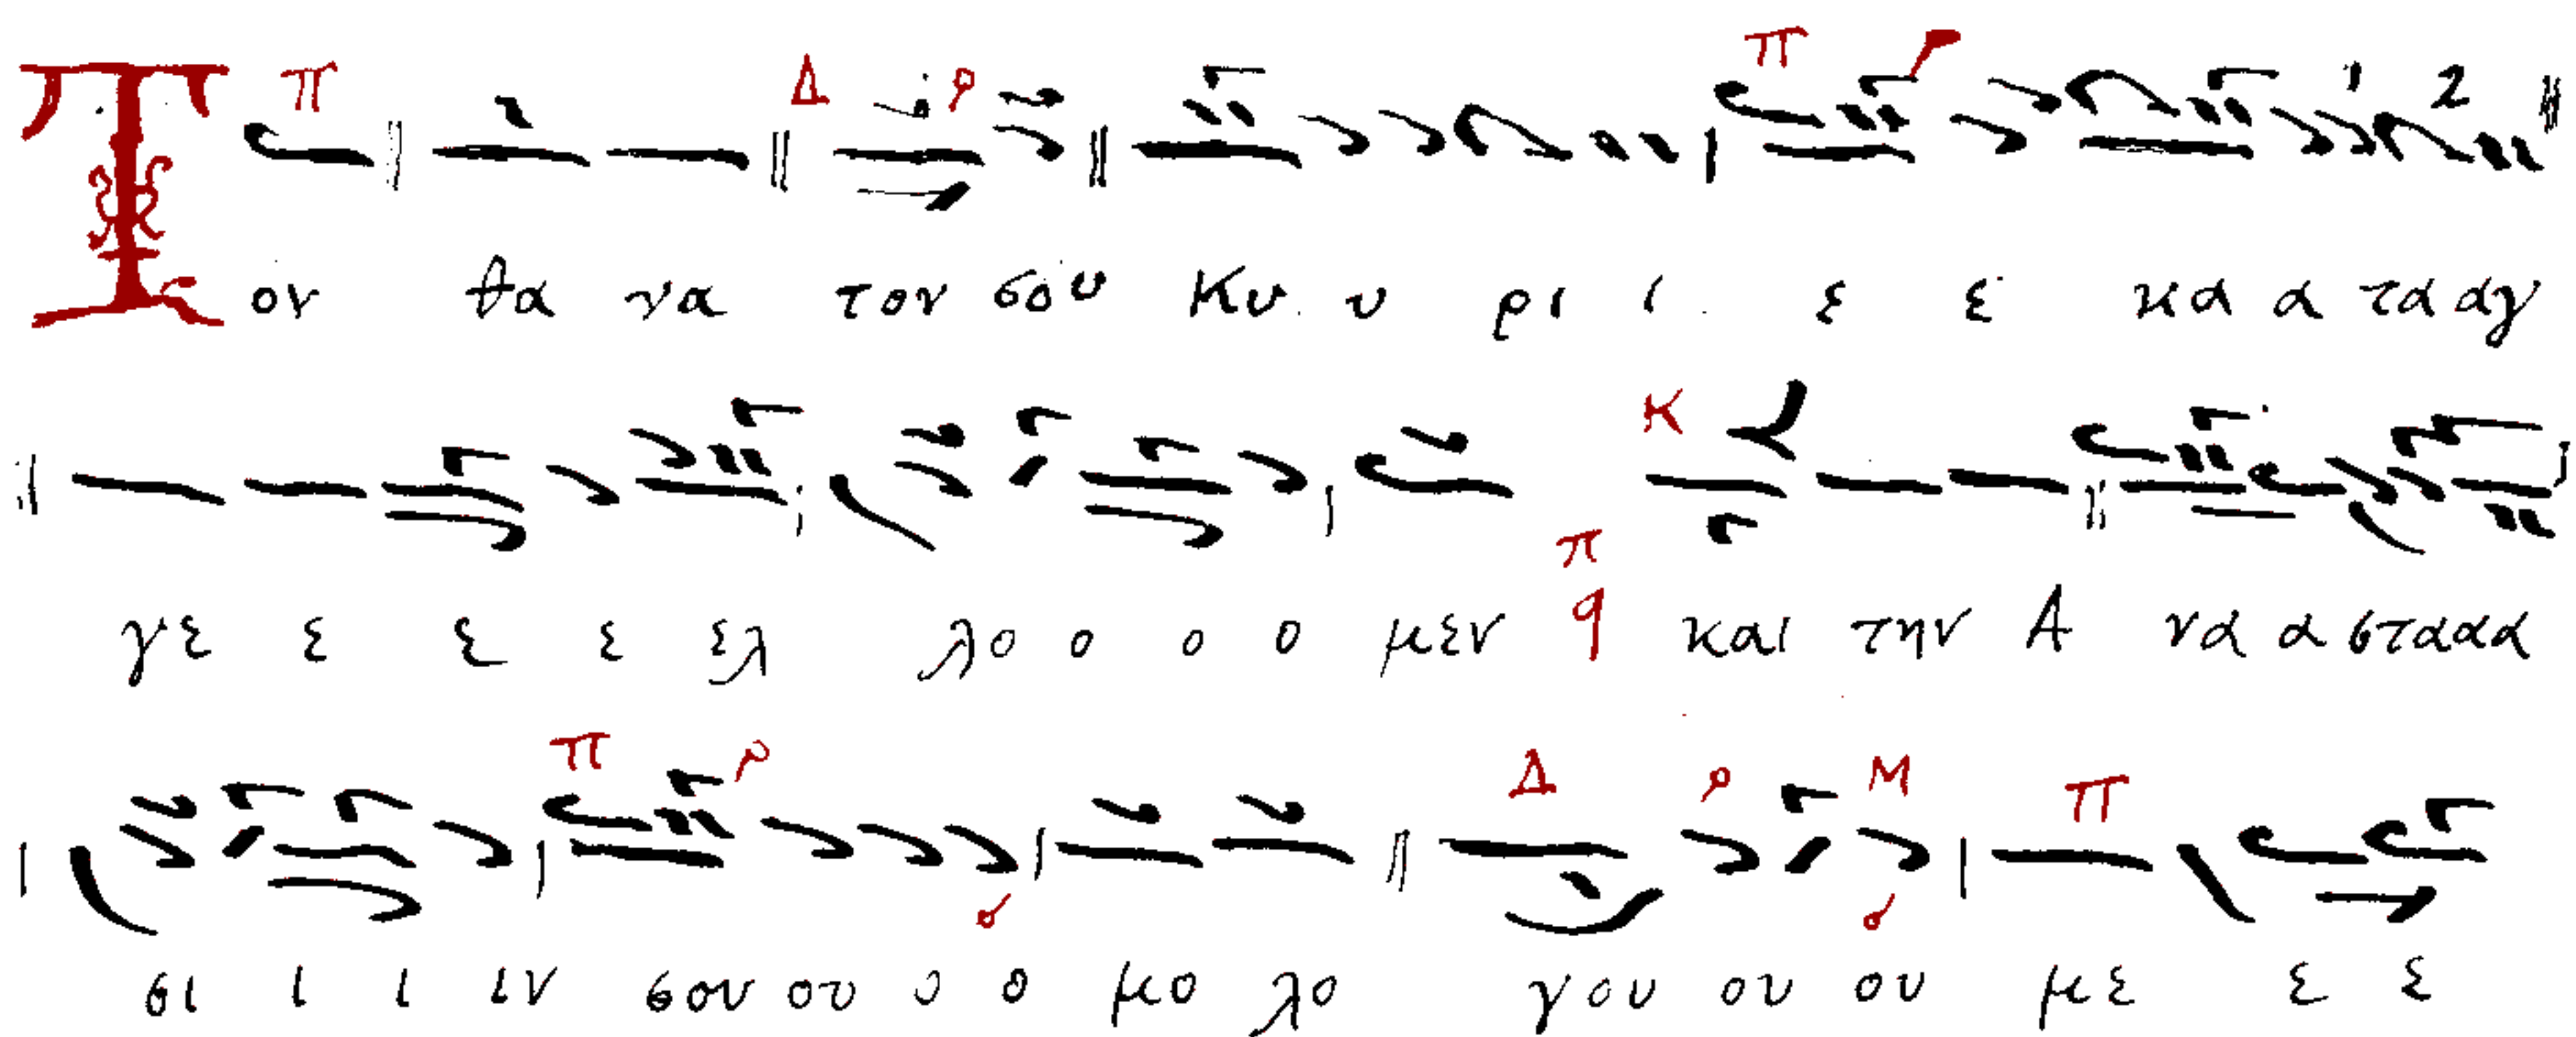 Τον θα να τον σου Κυ υ ρι ι ε ε κα α τα αγ
γε ε ε ε ελ λο ο ο ο μεν και την Α να α στααα
σι ι ι ιν σου ου ο ο μο λο γου ου ου με ε ε